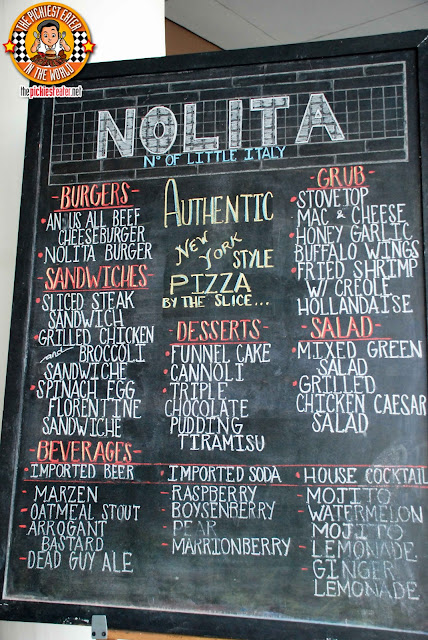 THE PICKIEST EATER
IN THE WORLD
thepickiesteater.net
NOLITA
Nº OF LITTLE ITALY
- BURGERS -
• ANGUS ALL BEEF
CHEESEBURGER
• NOLITA BURGER
- SANDWICHES -
• SLICED STEAK
SANDWICH
• GRILLED CHICKEN
and BROCCOLI
SANDWICHE
• SPINACH EGG
FLORENTINE
SANDWICHE
AUTHENTIC
NEW YORK STYLE
PIZZA
BY THE SLICE...
- DESSERTS -
• FUNNEL CAKE
• CANNOLI
• TRIPLE
CHOCOLATE
PUDDING
TIRAMISU
- GRUB -
• STOVETOP
MAC & CHEESE
• HONEY GARLIC
BUFFALO WINGS
• FRIED SHRIMP
W/ CREOLE
HOLLANDAISE
- SALAD -
• MIXED GREEN
SALAD
• GRILLED
CHICKEN CAESAR
SALAD
- BEVERAGES -
• IMPORTED BEER
- MARZEN
- OATMEAL STOUT
- ARROGANT
BASTARD
- DEAD GUY ALE
IMPORTED SODA
- RASPBERRY
- BOYSENBERRY
- PEAR
- MARRIONBERRY
• HOUSE COCKTAIL
- MOJITO
- WATERMELON
MOJITO
- LEMONADE
- GINGER
LEMONADE